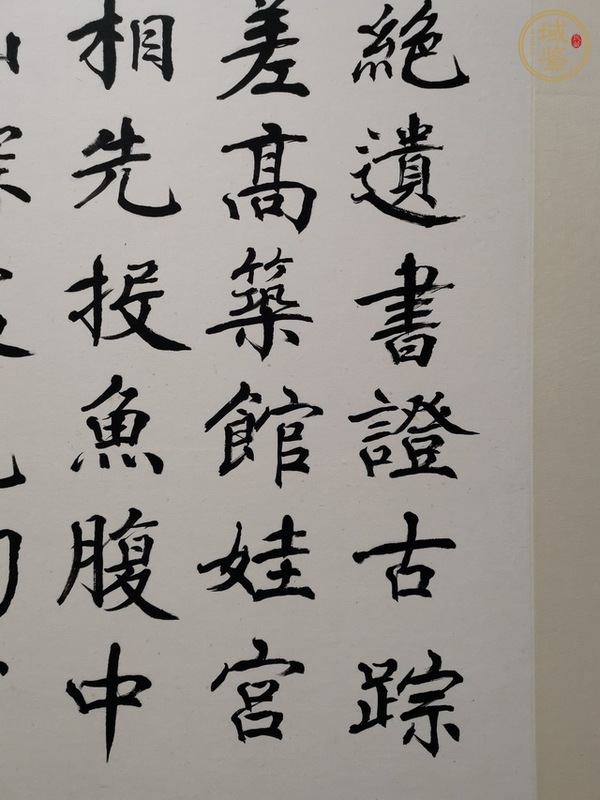 絶遺書證古踪
差髙築館娃宮
相先投魚腹中
域鑒